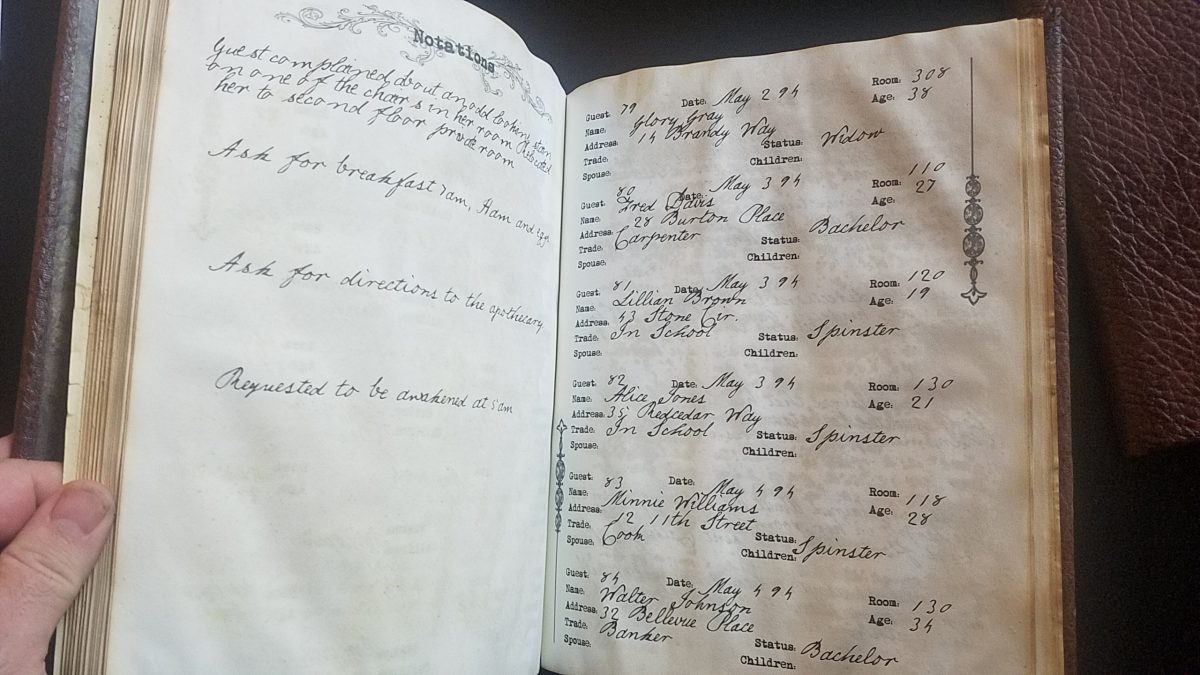 Notations
Guest complained about an odd looking stain
on one of the chairs in her room Relocated
her to second floor private room
Ask for breakfast 7am, Ham and eggs
Ask for directions to the apothecary
Requested to be awakened at 5am
Guest: 79 Date: May 2 94 Room: 308
Name: Glory Gray Age: 38
Address: 14 Brandy Way
Trade: Status: Widow
Spouse: Children:
Guest: 80 Date: May 3 94 Room: 110
Name: Fred Davis Age: 27
Address: 28 Burton Place
Trade: Carpenter Status: Bachelor
Spouse: Children:
Guest: 81 Date: May 3 94 Room: 120
Name: Lillian Brown Age: 19
Address: 43 Stone Cir.
Trade: In School Status: Spinster
Spouse: Children:
Guest: 82 Date: May 3 94 Room: 130
Name: Alice Jones Age: 21
Address: 35 Redcedar Way
Trade: In School Status: Spinster
Spouse: Children:
Guest: 83 Date: May 4 94 Room: 118
Name: Minnie Williams Age: 28
Address: 12 11th Street
Trade: Cook Status: Spinster
Spouse: Children:
Guest: 84 Date: May 4 94 Room: 130
Name: Walter Johnson Age: 34
Address: 32 Bellevue Place
Trade: Banker Status: Bachelor
Spouse: Children: